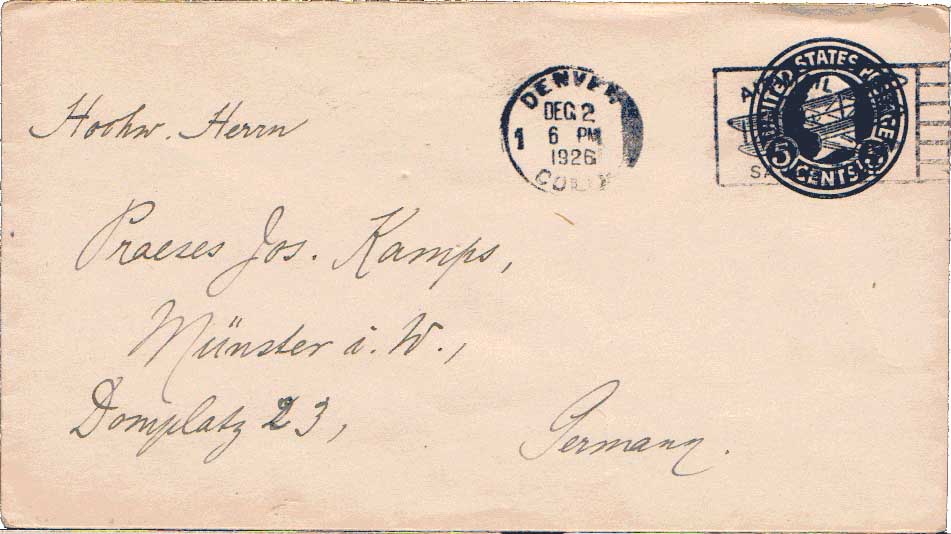 Hochw. Herrn
Praeses Jos. Kamps,
Münster i. W.,
Domplatz 23,
Germany.
DENVER
DEC 2
1 6 PM
1926
COLO
UNITED STATES POSTAGE
5 CENTS 5